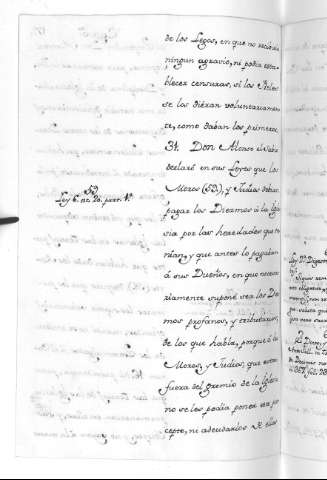 de los Legos, en que no recivian
ningun agravio, ni podia esta-
blecer censuras, si los Fieles
se las dieran voluntariamen-
te, como daban los primeros.
31. Don Alonso el Sabio
declaró en sus Leyes que los
Moros (SD), y Judios debian
pagar los Diezmos á la Igle-
sia por las heredades que te-
nian, y que antes lo pagaban
á sus Dueños, en que necesa-
riamente supone ser los Diez-
mos profanos, y tributarios,
de los que habla, porque á los
Moros, y Judios, que estan
fuera del gremio de la Iglesia
no se les podia poner ese pre-
cepto, ni adeudarlos de ellos
SD
Ley 6. tit. 20. part. 1ª